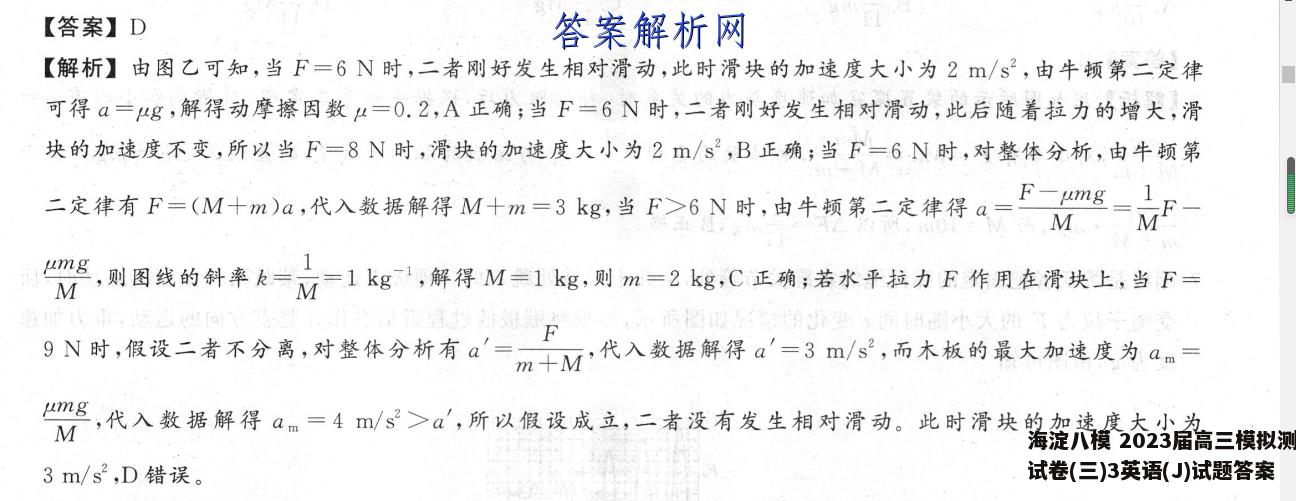 【答案】D
答案解析网
【解析】由图乙可知,当 F=6 N 时,二者刚好发生相对滑动,此时滑块的加速度大小为 2 m/s²,由牛顿第二定律
可得 a=μg,解得动摩擦因数 μ=0.2,A 正确;当 F=6 N 时,二者刚好发生相对滑动,此后随着拉力的增大,滑
块的加速度不变,所以当 F=8 N 时,滑块的加速度大小为 2 m/s²,B 正确;当 F=6 N 时,对整体分析,由牛顿第
二定律有 F=(M+m)a,代入数据解得 M+m=3 kg,当 F>6 N 时,由牛顿第二定律得 a=\frac{F-μmg}{M}=\frac{1}{M}F-
\frac{μmg}{M},则图线的斜率 k=\frac{1}{M}=1 kg⁻¹,解得 M=1 kg,则 m=2 kg,C 正确;若水平拉力 F 作用在滑块上,当 F=
9 N 时,假设二者不分离,对整体分析有 a′=\frac{F}{m+M},代入数据解得 a′=3 m/s²,而木板的最大加速度为 aₘ=
\frac{μmg}{M},代入数据解得 aₘ=4 m/s²>a′,所以假设成立,二者没有发生相对滑动。此时滑块的加速度大小为
3 m/s²,D 错误。
海淀八模 2023届高三模拟测
试卷(三)3英语(J)试题答案